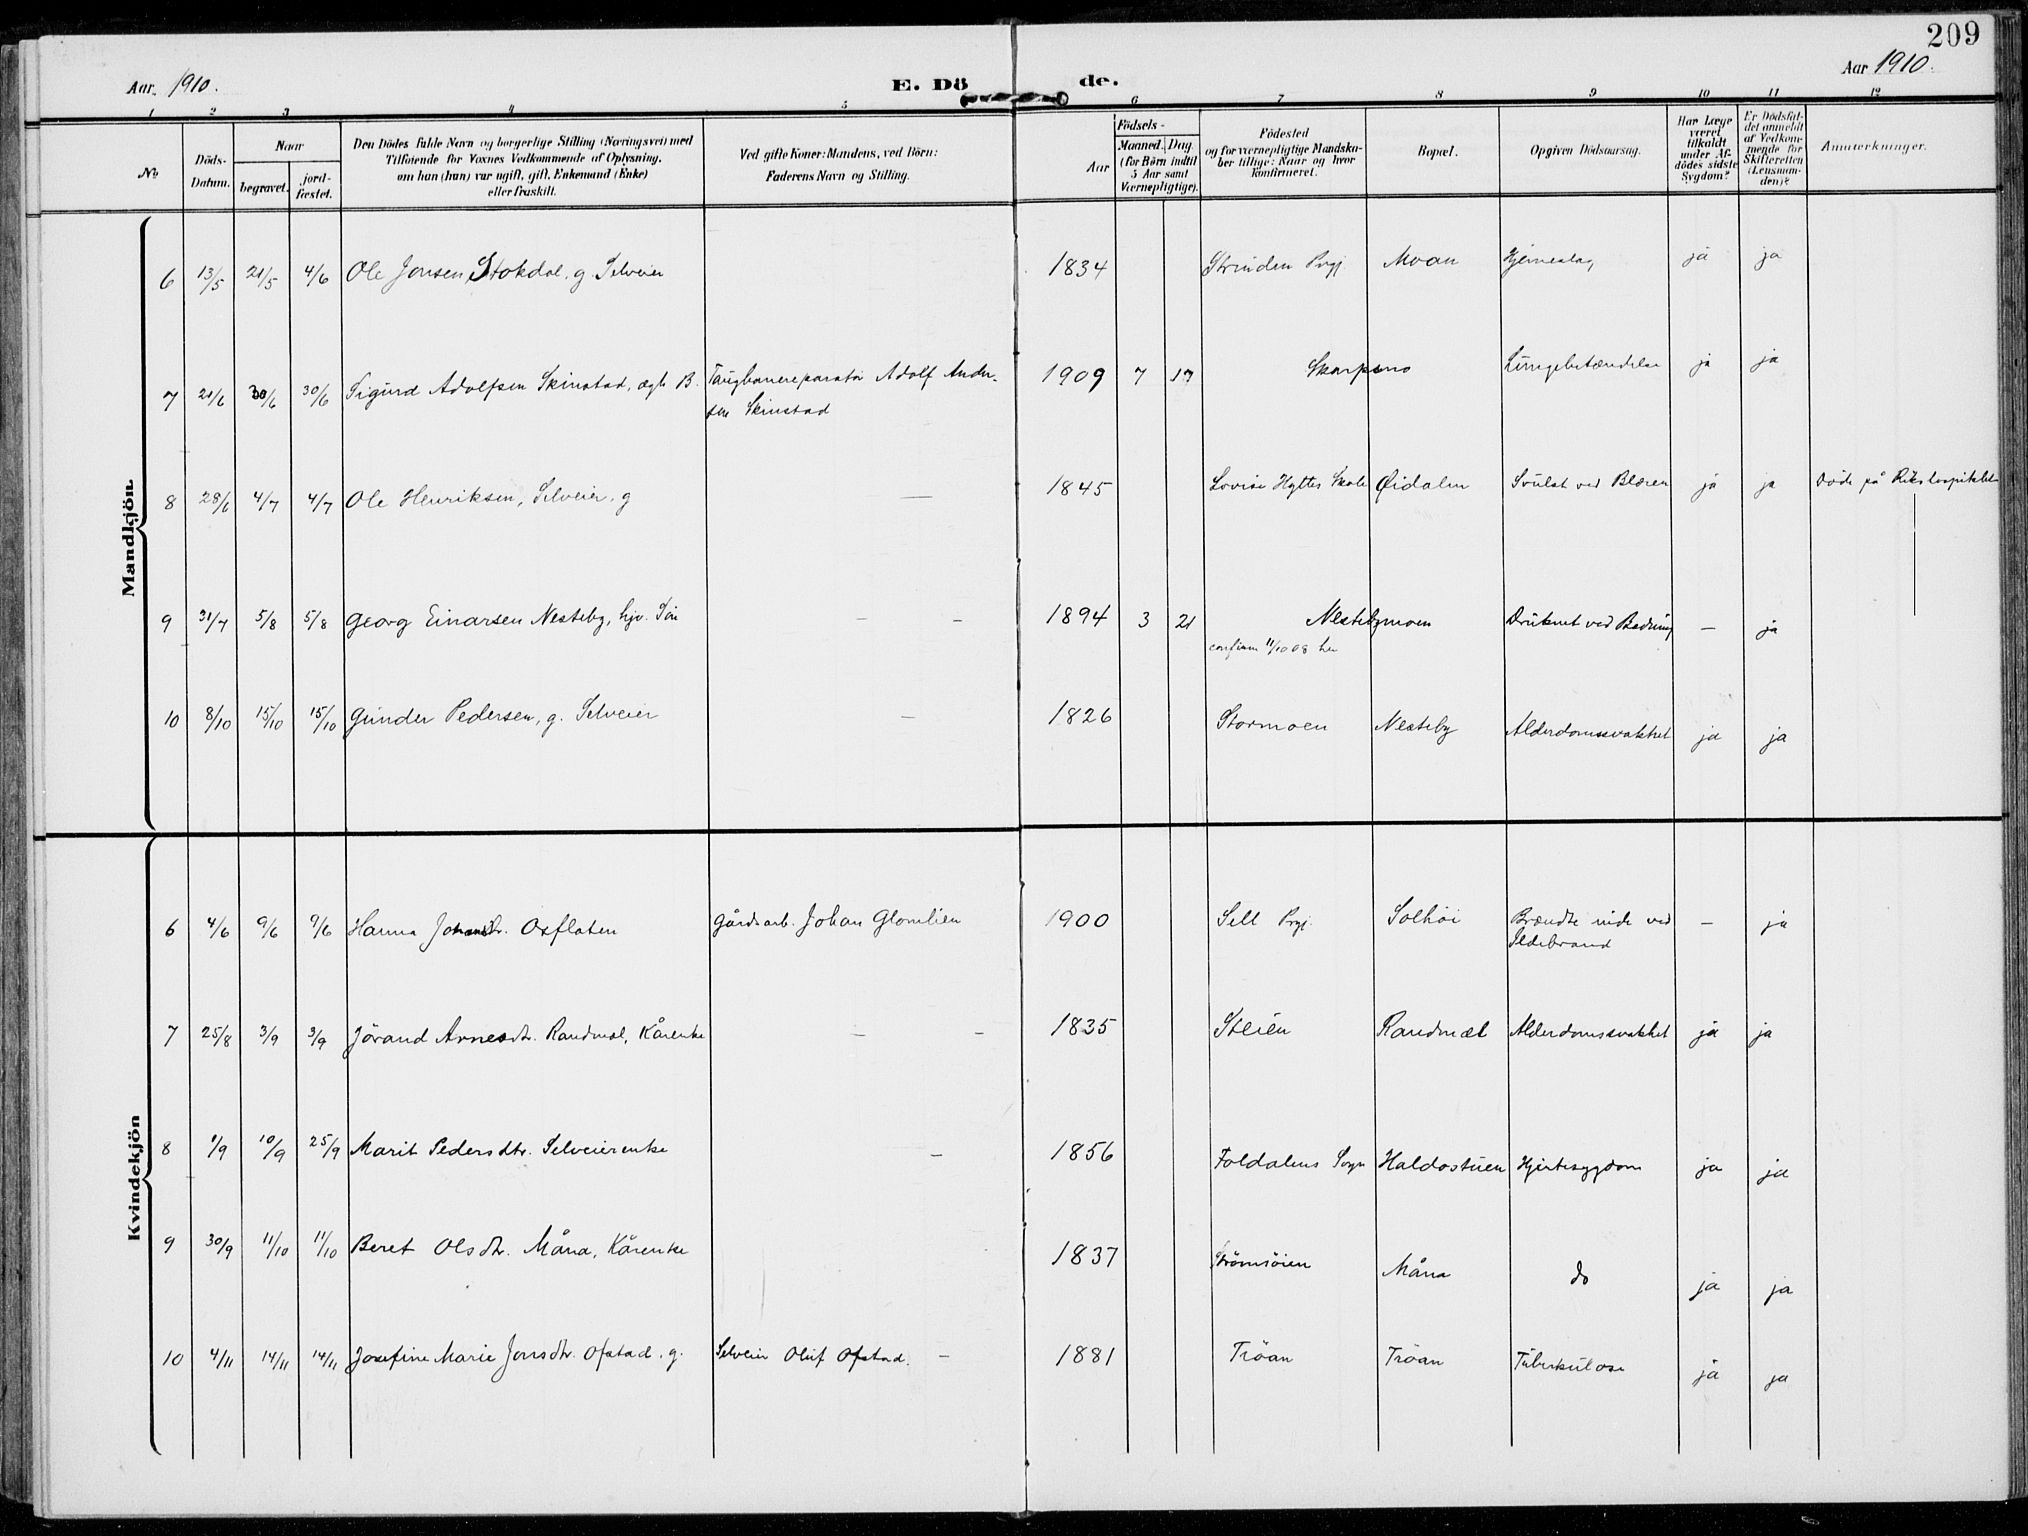 209
Aar. 1910.
E. Dö de.
Aar 1910.
1 2 3 4 5 6 7 8 9 10 11 12
No
Döds-Datum.
Naar
begravet.
jord-fæstet.
Den Dödes fulde Navn og borgerlige Stilling (Næringsvei) med
Tilföiende for Voxnes Vedkommende af Oplysning,
om han (hun) var ugift, gift, Enkemand (Enke)
eller fraskilt.
Ved gifte Koner: Mandens, ved Börn:
Faderens Navn og Stilling.
Födsels-
Aar
Maaned. Dag.
(for Börn indtil
5 Aar samt
Værnepligtige).
Födested
og for værnepligtige Mandska-
ber tillige: Naar og hvor
konfirmeret.
Bopæl.
Opgiven Dödsaarsag.
Har Læge
været
tilkaldt
under Af-
dödes sidste
Sygdom?
Er Dödsfal-
det anmeldt
af Vedkom-
mende for
Skifteretten
(Lensman-
den)?
Anmærkninger.
Mandkjön.
6 13/5 21/5 4/6 Ole Jonsen Stokdal, g. Selveier 1834 Strinden Prgj. Moan Hjerneslag ja ja
7 21/6 30/6 30/6 Sigurd Adolfsen Skinstad, ægte B. Taugbanereparatör Adolf Ander- 1909 7 17 Skarpsno Lungebetændelse ja ja
sen Skinstad
8 28/6 4/7 4/7 Ole Henriksen, Selveier, g — 1845 Lovise Hyttes Skole Øidalen Svulst ved Blæren ja ja Döde på Rikshospitalet
9 31/7 5/8 5/8 Georg Einarsen Nesteby, hjv. Sön — — 1894 3 21 Nestebymoen Druknet ved Badning — ja
confirm 11/10 08 her
10 8/10 15/10 15/10 Gunder Pedersen, g. Selveier — 1826 Stormoen Nesteby Alderdomssvakhet ja ja
Kvindekjön
6 4/6 9/6 9/6 Hanna Johansdtr. Oxflaten Gårdsarb. Johan Glomlien 1900 Sell Prgj. Solhöi Brændte inde ved — ja
Ildebrand
7 25/8 3/9 3/9 Jörand Arnesdtr. Randmæl, Kårenke — — 1835 Steien Randmæl Alderdomssvakhet ja ja
8 1/9 10/9 25/9 Marit Pedersdtr. Selveierenke — 1856 Foldalens Sogn Haldostuen Hjertesygdom ja ja
9 30/9 11/10 11/10 Beret Olsdtr. Måna, Kårenke 1837 Strömsöien Måna do ja ja
10 4/11 14/11 14/11 Josefine Marie Jonsdtr. Ofstad, g. Selveier Oluf Ofstad. — 1881 Tröan Tröan Tuberkulose ja ja